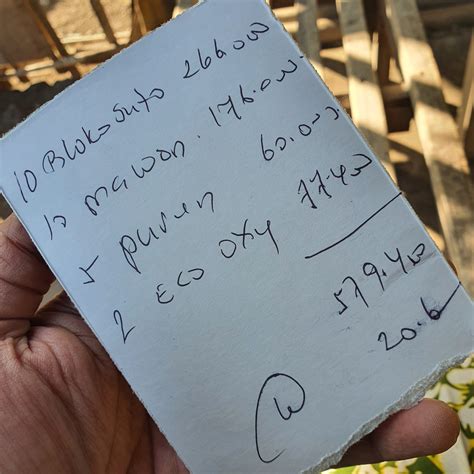 10 Bloko Suto 266.000
10 mawon. 176.000
5 puren 60.000
2 Eco oxy 77.400
579.400
20.6